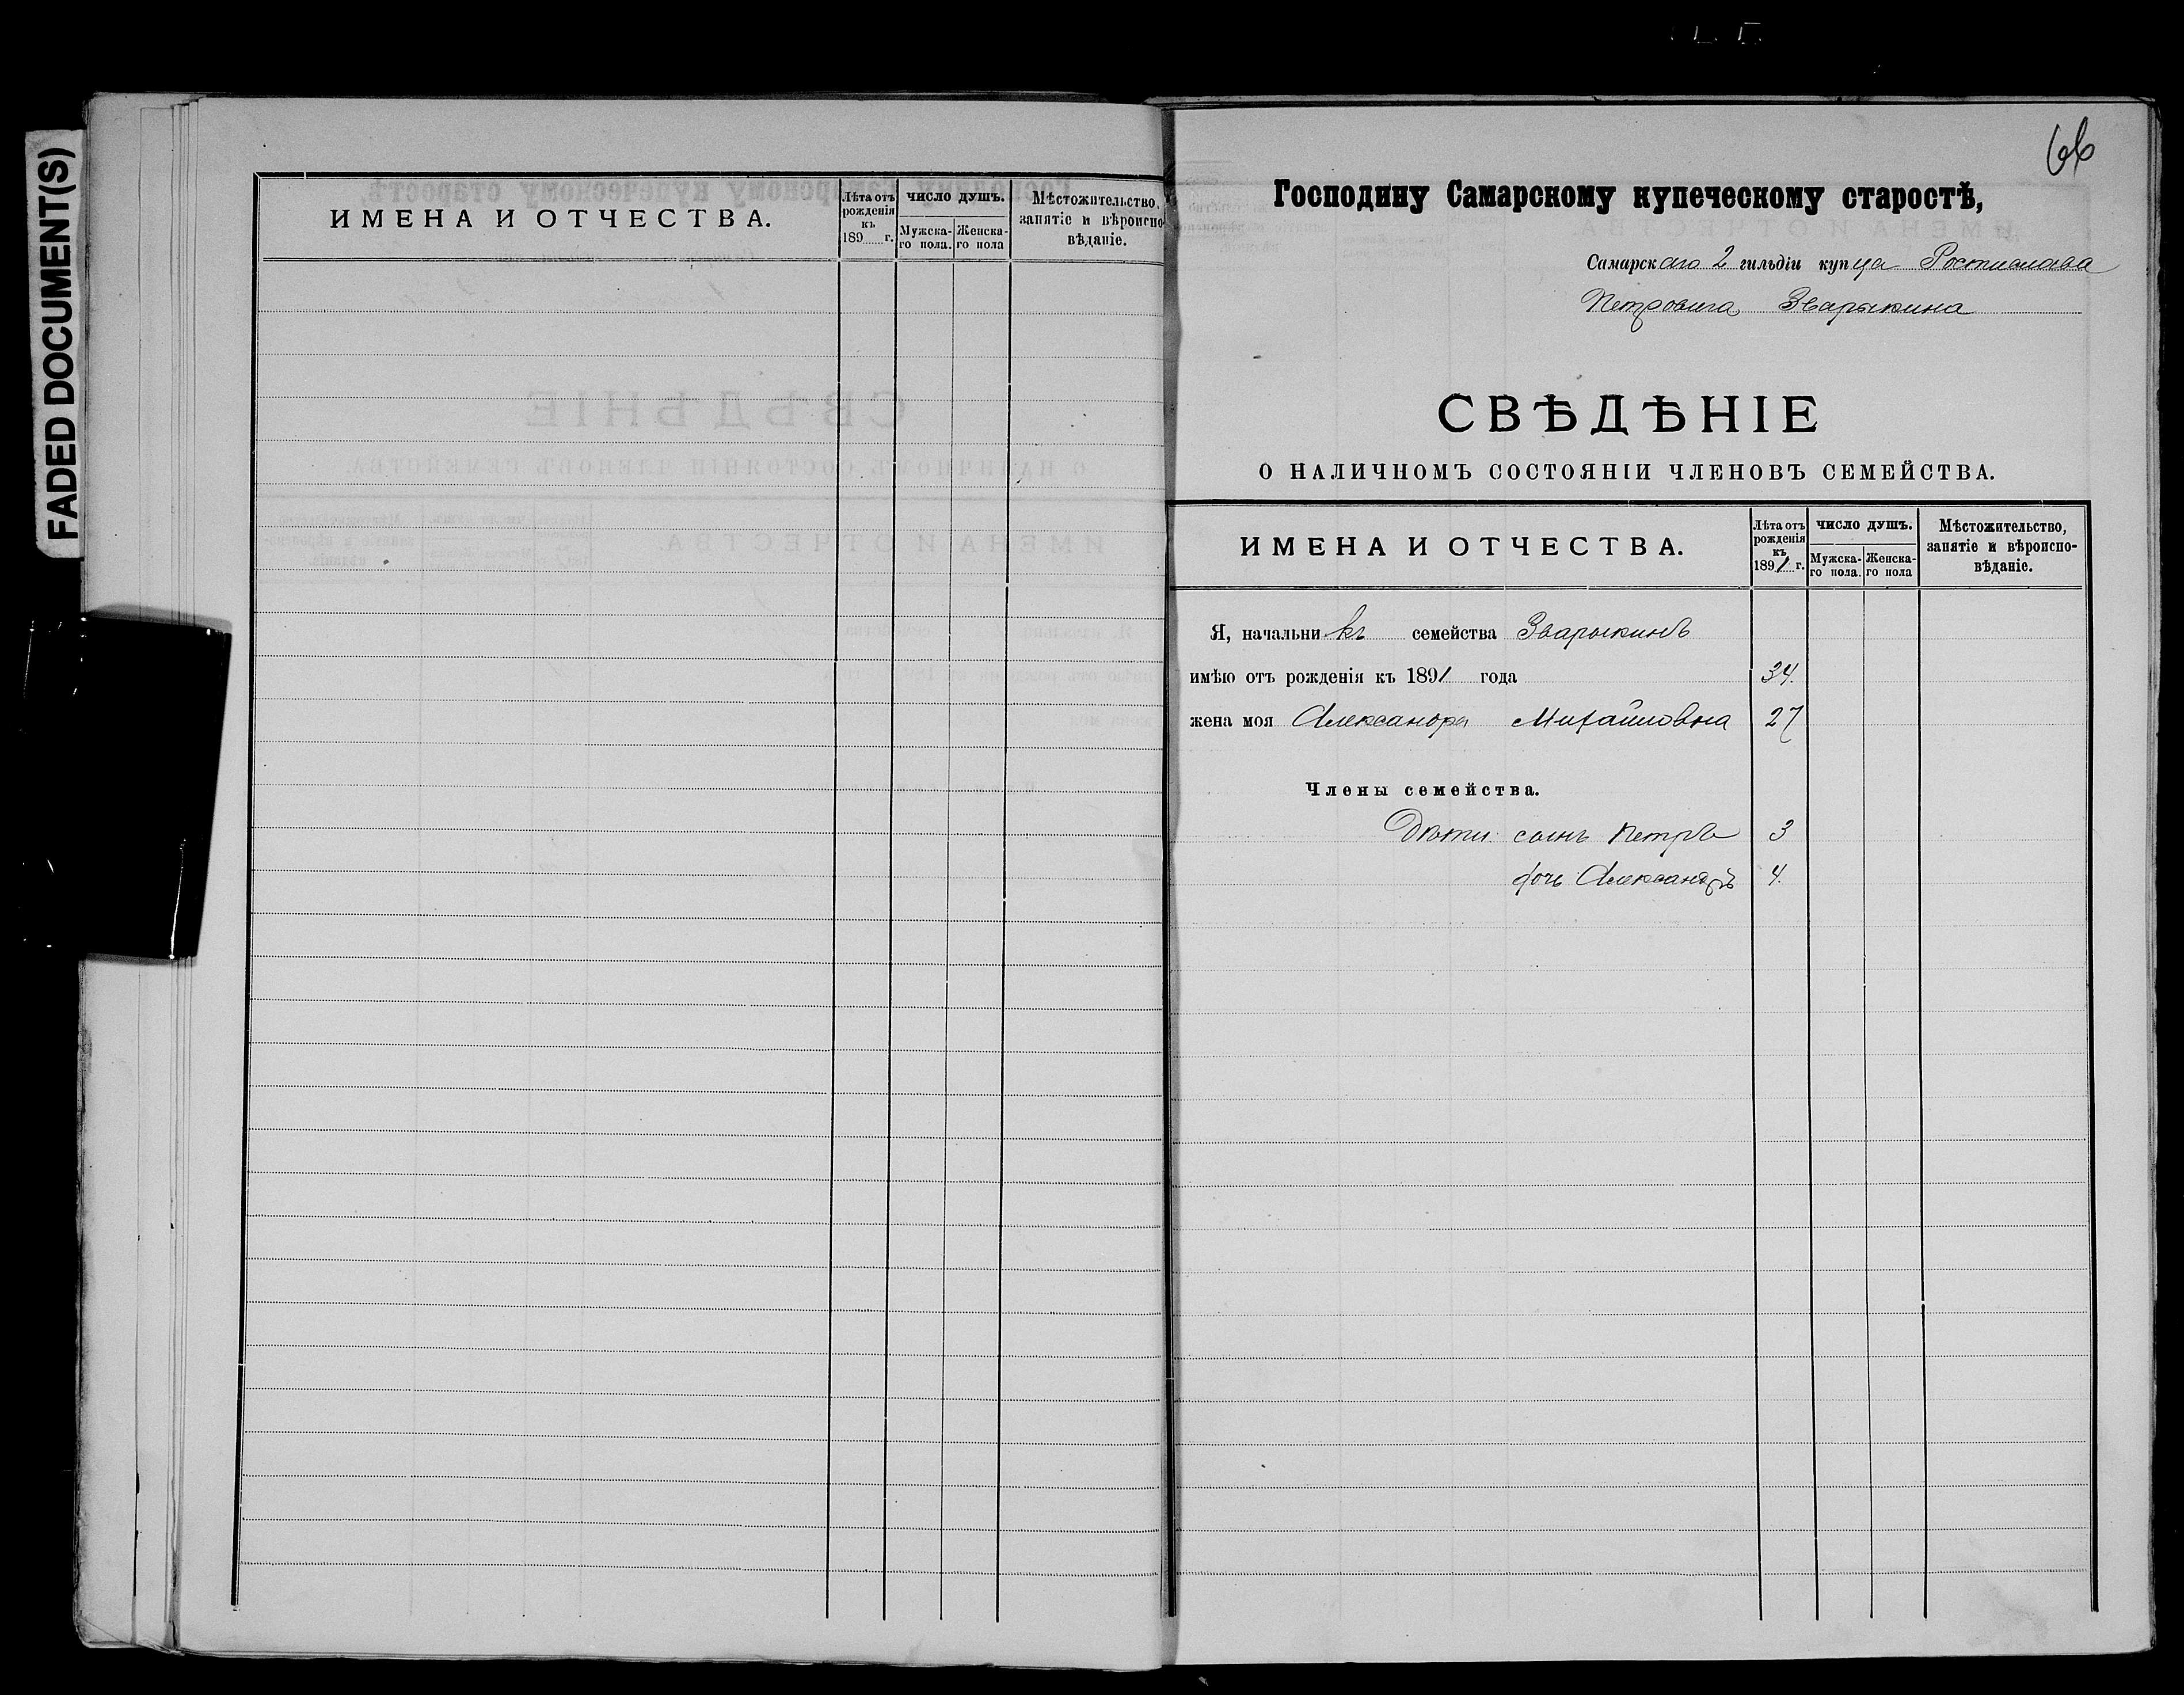 FADED DOCUMENT(S)
ИМЕНА И ОТЧЕСТВА.
Лѣта отъ рожденія къ 189 г.
число душъ.
Мужска-го пола.
Женска-го пола
Мѣстожительство, занятіе и вѣроиспо-вѣданіе.
66
Господину Самарскому купеческому старостѣ,
Самарскаго 2 гильдіи купца Ростислава
Петровича Зварыкина
СВѢДѢНІЕ
О НАЛИЧНОМЪ СОСТОЯНІИ ЧЛЕНОВЪ СЕМЕЙСТВА.
ИМЕНА И ОТЧЕСТВА.
Лѣта отъ рожденія къ 1891 г.
число душъ.
Мужска-го пола.
Женска-го пола
Мѣстожительство, занятіе и вѣроиспо-вѣданіе.
Я, начальникъ семейства Зварыкинъ
имѣю отъ рожденія къ 1891 года 34.
жена моя Александра Михайловна 27
Члены семейства.
Дѣти: сынъ Петръ 3
дочь Александръ 4.